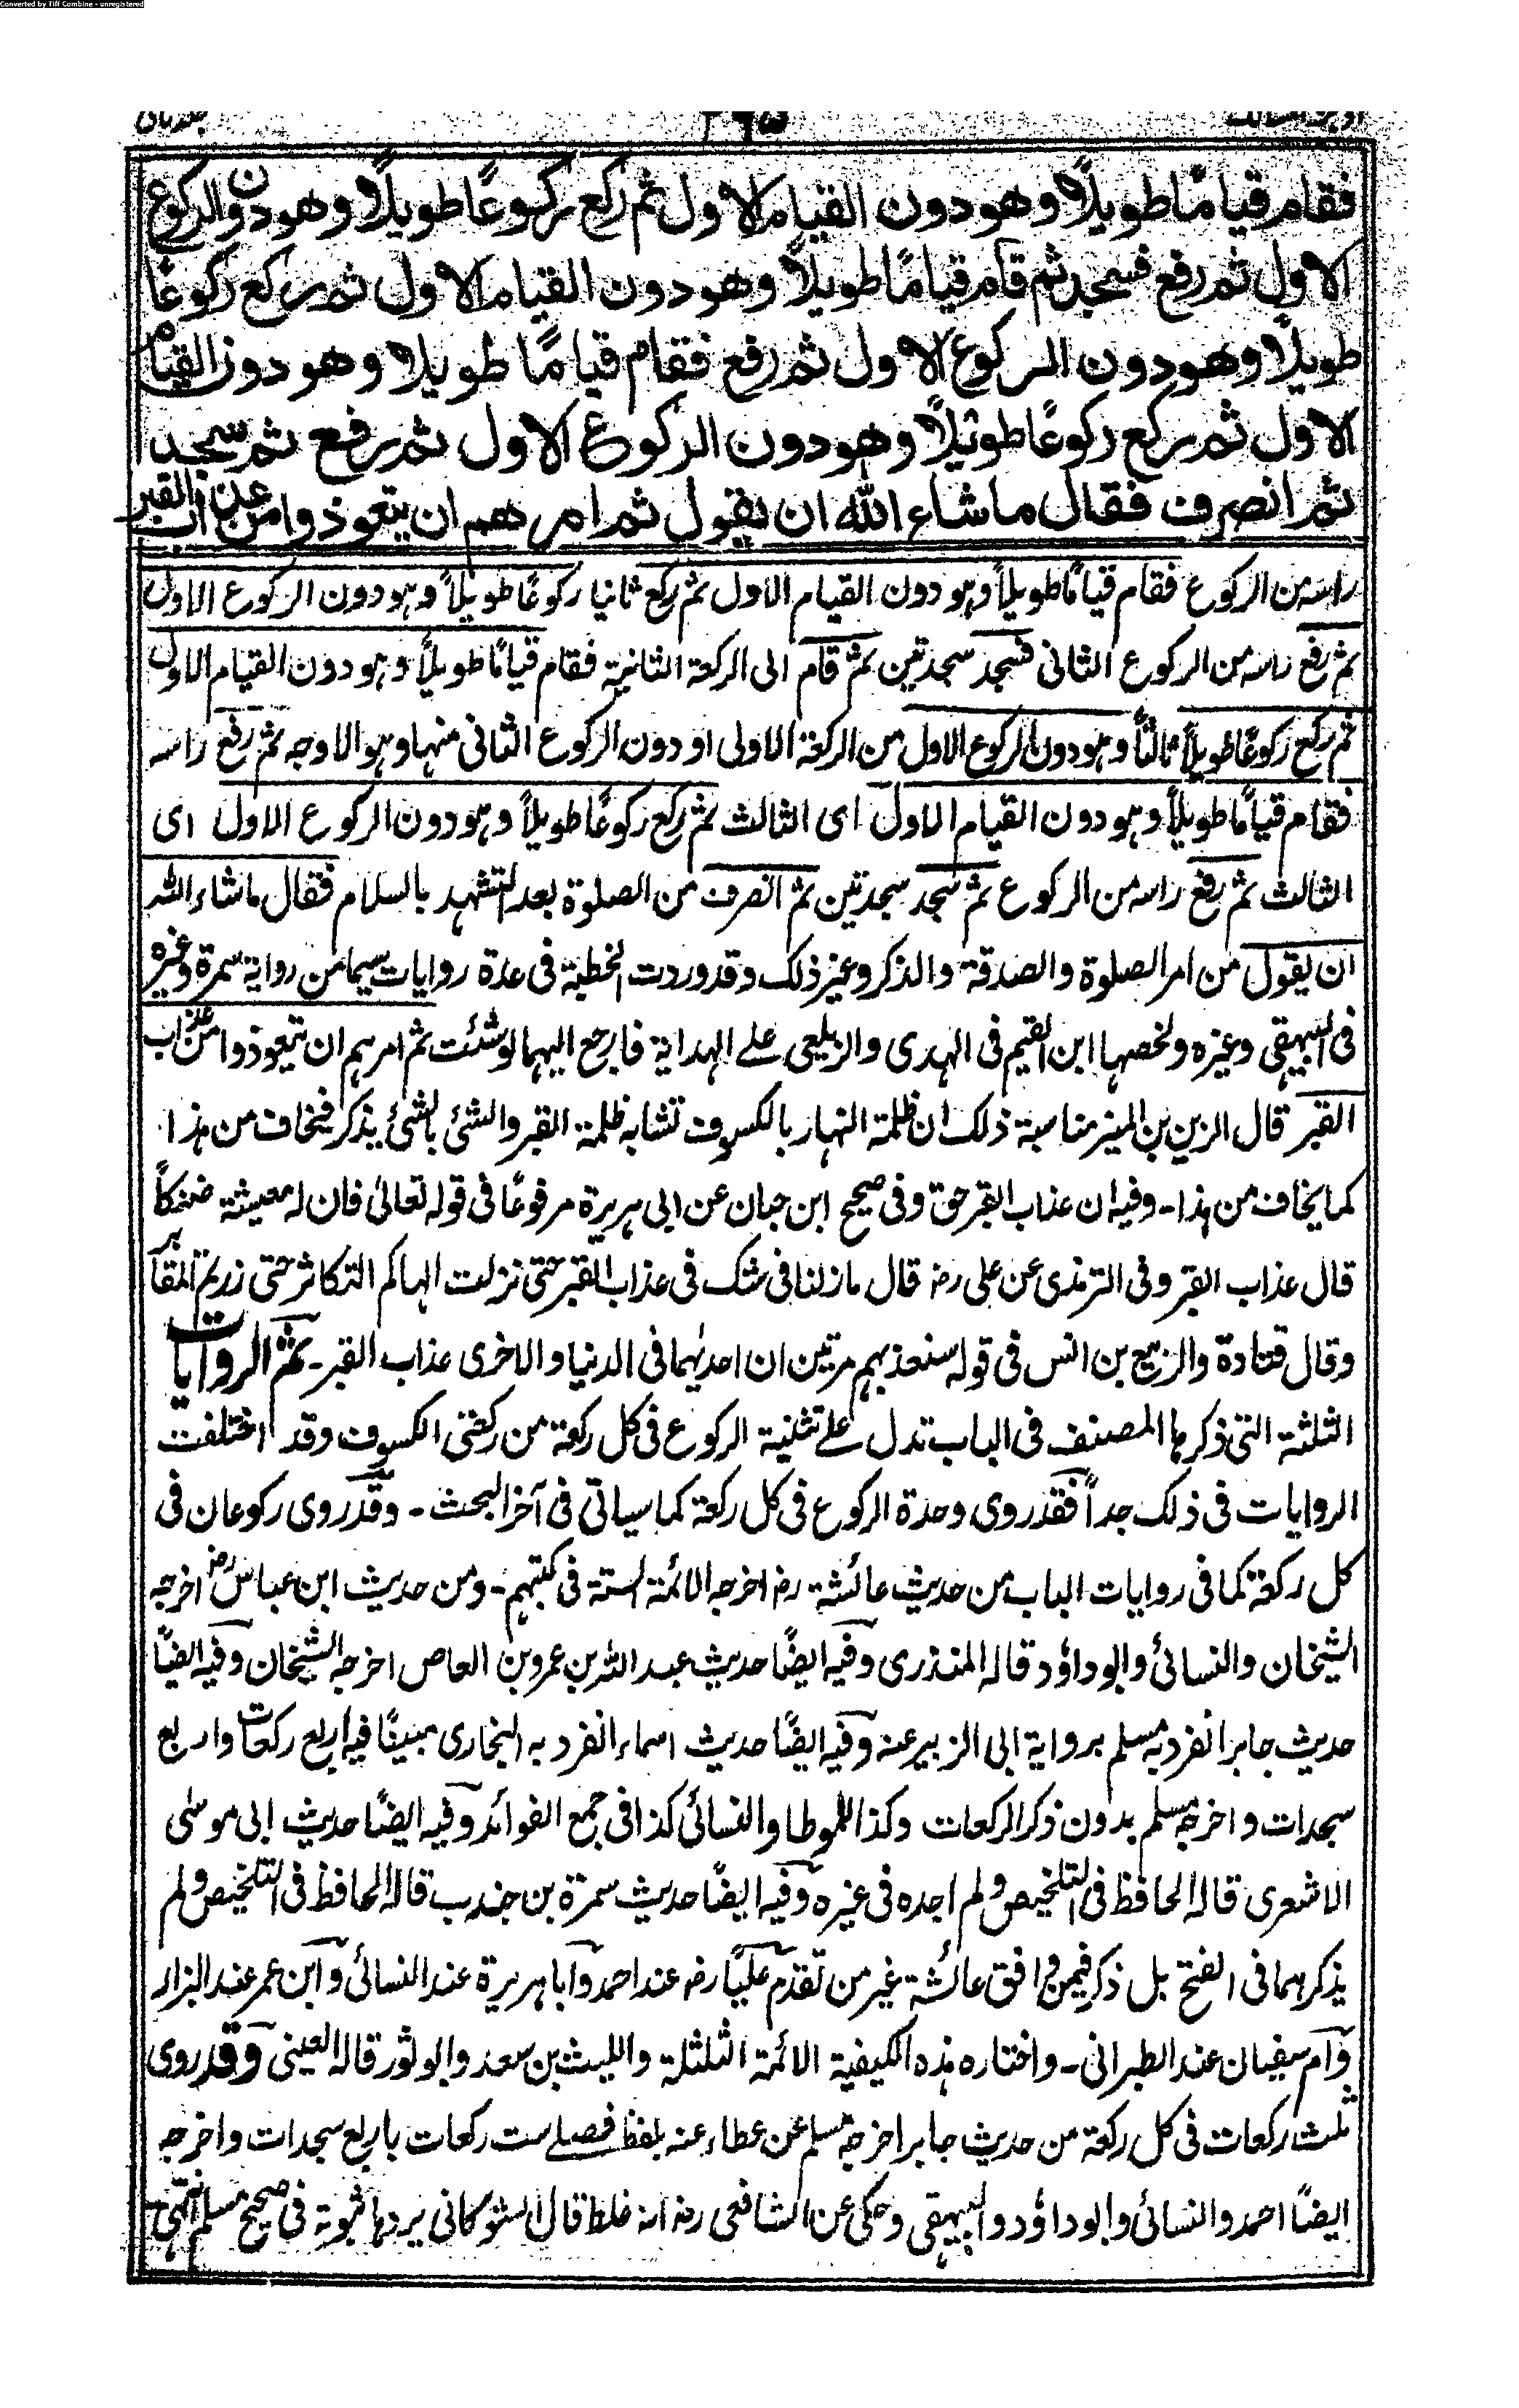 Converted by Tiff Combine - unregistered
فقام قيامًا طويلًا وهو دون القيام الاول ثم ركع ركوعًا طويلًا وهو دون الركوع
الاول ثم رفع فسجد ثم قام قيامًا طويلًا وهو دون القيام الاول ثم ركع ركوعًا
طويلًا وهو دون الركوع الاول ثم رفع فقام قيامًا طويلا وهو دون القيام
الاول ثم ركع ركوعًا طويلًا وهو دون الركوع الاول ثم رفع ثم سجد
ثم انصرف فقال ما شاء الله ان يقول ثم امرهم ان يتعوذوا من عذاب القبر
راسه من الركوع فقام قيامًا طويلًا وهو دون القيام الاول ثم ركع ثانيا ركوعًا طويلًا وهو دون الركوع الاول
ثم رفع راسه من الركوع الثانى فسجد سجدتين ثم قام الى الركعة الثانية فقام قيامًا طويلًا وهو دون القيام الاول
ثم ركع ركوعًا طويلًا ثالثًا وهو دون الركوع الاول من الركعة الاولى او دون الركوع الثانى منها وهو الاوجه ثم رفع راسه
فقام قيامًا طويلًا وهو دون القيام الاول اى الثالث ثم ركع ركوعًا طويلًا وهو دون الركوع الاول اى
الثالث ثم رفع راسه من الركوع ثم سجد سجدتين ثم انصرف من الصلوة بعد التشهد بالسلام فقال ما شاء الله
ان يقول من امر الصلوة والصدقة والذكر وغير ذلك وقد وردت الخطبة فى عدة روايات سيما من رواية سمرة وغيره
فى البيهقى وغيره ولخصها ابن القيم فى الهدى والزيلعى على الهداية فارجع اليهما لو شئت ثم امرهم ان يتعوذوا من عذاب
القبر قال الزين بن المنير مناسبة ذلك ان ظلمة النهار بالكسوف تشابه ظلمة القبر والشئ بالشئ يذكر فيخاف من هذا
كما يخاف من هذا - وفيه ان عذاب القبر حق وفى صحيح ابن حبان عن ابى هريرة مرفوعًا فى قوله تعالى فان له معيشة ضنكاً
قال عذاب القبر وفى الترمذى عن على رض قال ما زلنا فى شك فى عذاب القبر حتى نزلت الهاكم التكاثر حتى زرتم المقابر
وقال قتادة والربيع بن انس فى قوله سنعذبهم مرتين ان احديهما فى الدنيا والاخرى عذاب القبر - ثم الروايات
الثلثة التى ذكرها المصنف فى الباب تدل على تثنية الركوع فى كل ركعة من ركعتى الكسوف وقد اختلفت
الروايات فى ذلك جداً فقد روى وحدة الركوع فى كل ركعة كما سياتى فى آخر البحث - وقد روى ركوعان فى
كل ركعة كما فى روايات الباب من حديث عائشة رض اخرجه الائمة الستة فى كتبهم - ومن حديث ابن عباس رض اخرجه
الشيخان والنسائى وابو داؤد قاله المنذرى وفيه ايضًا حديث عبد الله بن عمرو بن العاص اخرجه الشيخان وفيه ايضًا
حديث جابر انفرد به مسلم برواية ابى الزبير عنه وفيه ايضًا حديث اسماء انفرد به البخارى مبينًا فيه اربع ركعات واربع
سجدات واخرجه مسلم بدون ذكر الركعات وكذا للموطا والنسائى كذا فى جمع الفوائد وفيه ايضًا حديث ابى موسى
الاشعرى قاله الحافظ فى التلخيص ولم اجده فى غيره وفيه ايضًا حديث سمرة بن جندب قاله الحافظ فى التلخيص ولم
يذكرهما فى الفتح بل ذكر فيمن وافق عائشة غير من تقدم عليًا رض عند احمد وابا هريرة عند النسائى وابن عمر عند البزار
وام سفيان عند الطبرانى - واختاره هذه الكيفية الائمة الثلثلة والليث بن سعد وابو ثور قاله العينى وقد روى
ثلث ركعات فى كل ركعة من حديث جابر اخرجه مسلم عن عطاء عنه بلفظ فصلے ست ركعات باربع سجدات واخرجه
ايضًا احمد والنسائى وابو داؤد والبيهقى وحكى عن الشافعى رض انه غلط قال الشوكانى يردها ثبوته فى صحيح مسلم انتهى